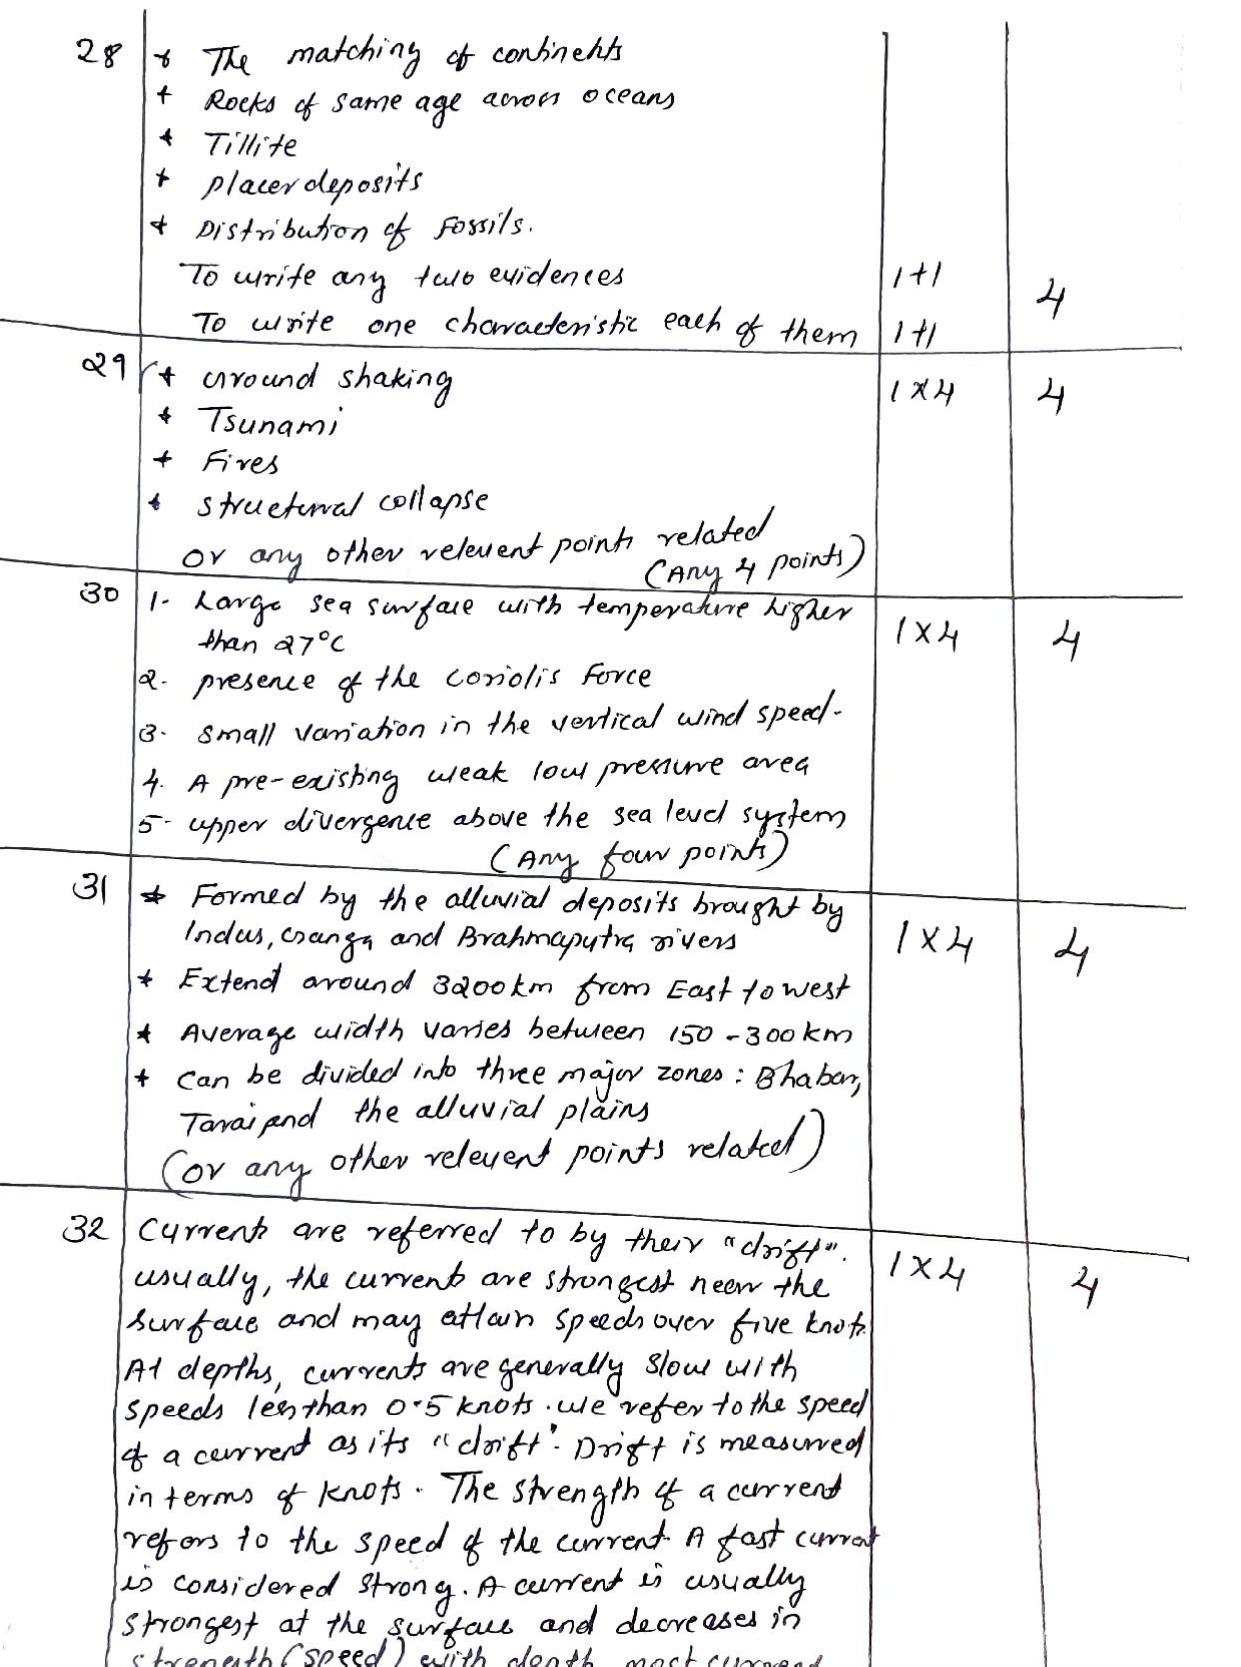 28 * The matching of continents
+ Rocks of same age across oceans
* Tillite
+ placer deposits
+ Distribution of Fossils.
To write any two evidences 1+1
4
To write one characteristic each of them 1+1
29 + Ground shaking 1x4 4
* Tsunami
+ Fires
* structural collapse
or any other relevent points related
(Any 4 points)
30 1. Large sea surface with temperature higher
than 27°C 1x4 4
2. presence of the coriolis Force
3. small variation in the vertical wind speed.
4. A pre-existing weak low pressure area
5. upper divergence above the sea level system
(Any four points)
31 * Formed by the alluvial deposits brought by
Indus, Ganga and Brahmaputra rivers 1x4 4
+ Extend around 3200 km from East to west
* Average width varies between 150-300 km
+ can be divided into three major zones: Bhabar,
Tarai and the alluvial plains
(or any other relevent points related)
32 Currents are referred to by their "drift".
usually, the currents are strongest near the 1x4 4
surface and may attain speeds over five knots.
At depths, currents are generally slow with
speeds less than 0.5 knots. we refer to the speed
of a current as its "drift". Drift is measured
in terms of knots. The strength of a current
refers to the speed of the current. A fast current
is considered strong. A current is usually
strongest at the surface and decreases in
strength (speed) with depth most current